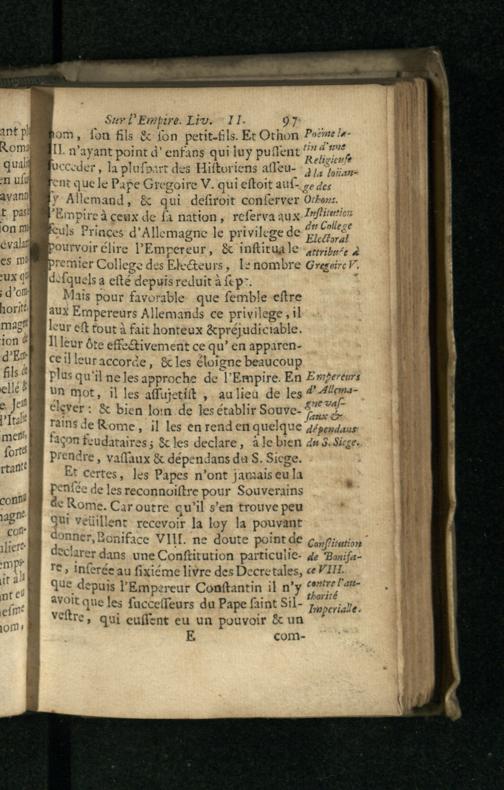 Sur l'Empire. Liv. II. 97
nom, son fils & son petit-fils. Et Othon
III. n'ayant point d'enfans qui luy pussent
succeder, la pluspart des Historiens asseu-
rent que le Pape Gregoire V. qui estoit aus-
sy Allemand, & qui desiroit conserver
l'Empire à ceux de sa nation, reserva aux
seuls Princes d'Allemagne le privilege de
pourvoir élire l'Empereur, & institua le
premier College des Electeurs, le nombre
desquels a esté depuis reduit à sept.
Mais pour favorable que semble estre
aux Empereurs Allemands ce privilege, il
leur est tout à fait honteux & préjudiciable.
Il leur ôte effectivement ce qu'en apparen-
ce il leur accorde, & les éloigne beaucoup
plus qu'il ne les approche de l'Empire. En
un mot, il les assujetist, au lieu de les
élever: & bien loin de les établir Souve-
rains de Rome, il les en rend en quelque
façon feudataires; & les declare, à le bien
prendre, vassaux & dépendans du S. Siege.
Et certes, les Papes n'ont jamais eu la
pensée de les reconnoistre pour Souverains
de Rome. Car outre qu'il s'en trouve peu
qui veüillent recevoir la loy la pouvant
donner, Boniface VIII. ne doute point de
declarer dans une Constitution particulie-
re, inserée au sixiéme livre des Decretales,
que depuis l'Empereur Constantin il n'y
avoit que les successeurs du Pape saint Sil-
vestre, qui eussent eu un pouvoir & un
E com-
Poëme la-
tin d'une
Religieuse
à la loüan-
ge des
Othons.
Institution
du College
Electoral
attribuée à
Gregoire V.
Empereurs
d'Allema-
gne vas-
saux &
dépendans
du S. Siege.
Constitution
de Bonifa-
ce VIII.
contre l'au-
thorité
Imperialle.